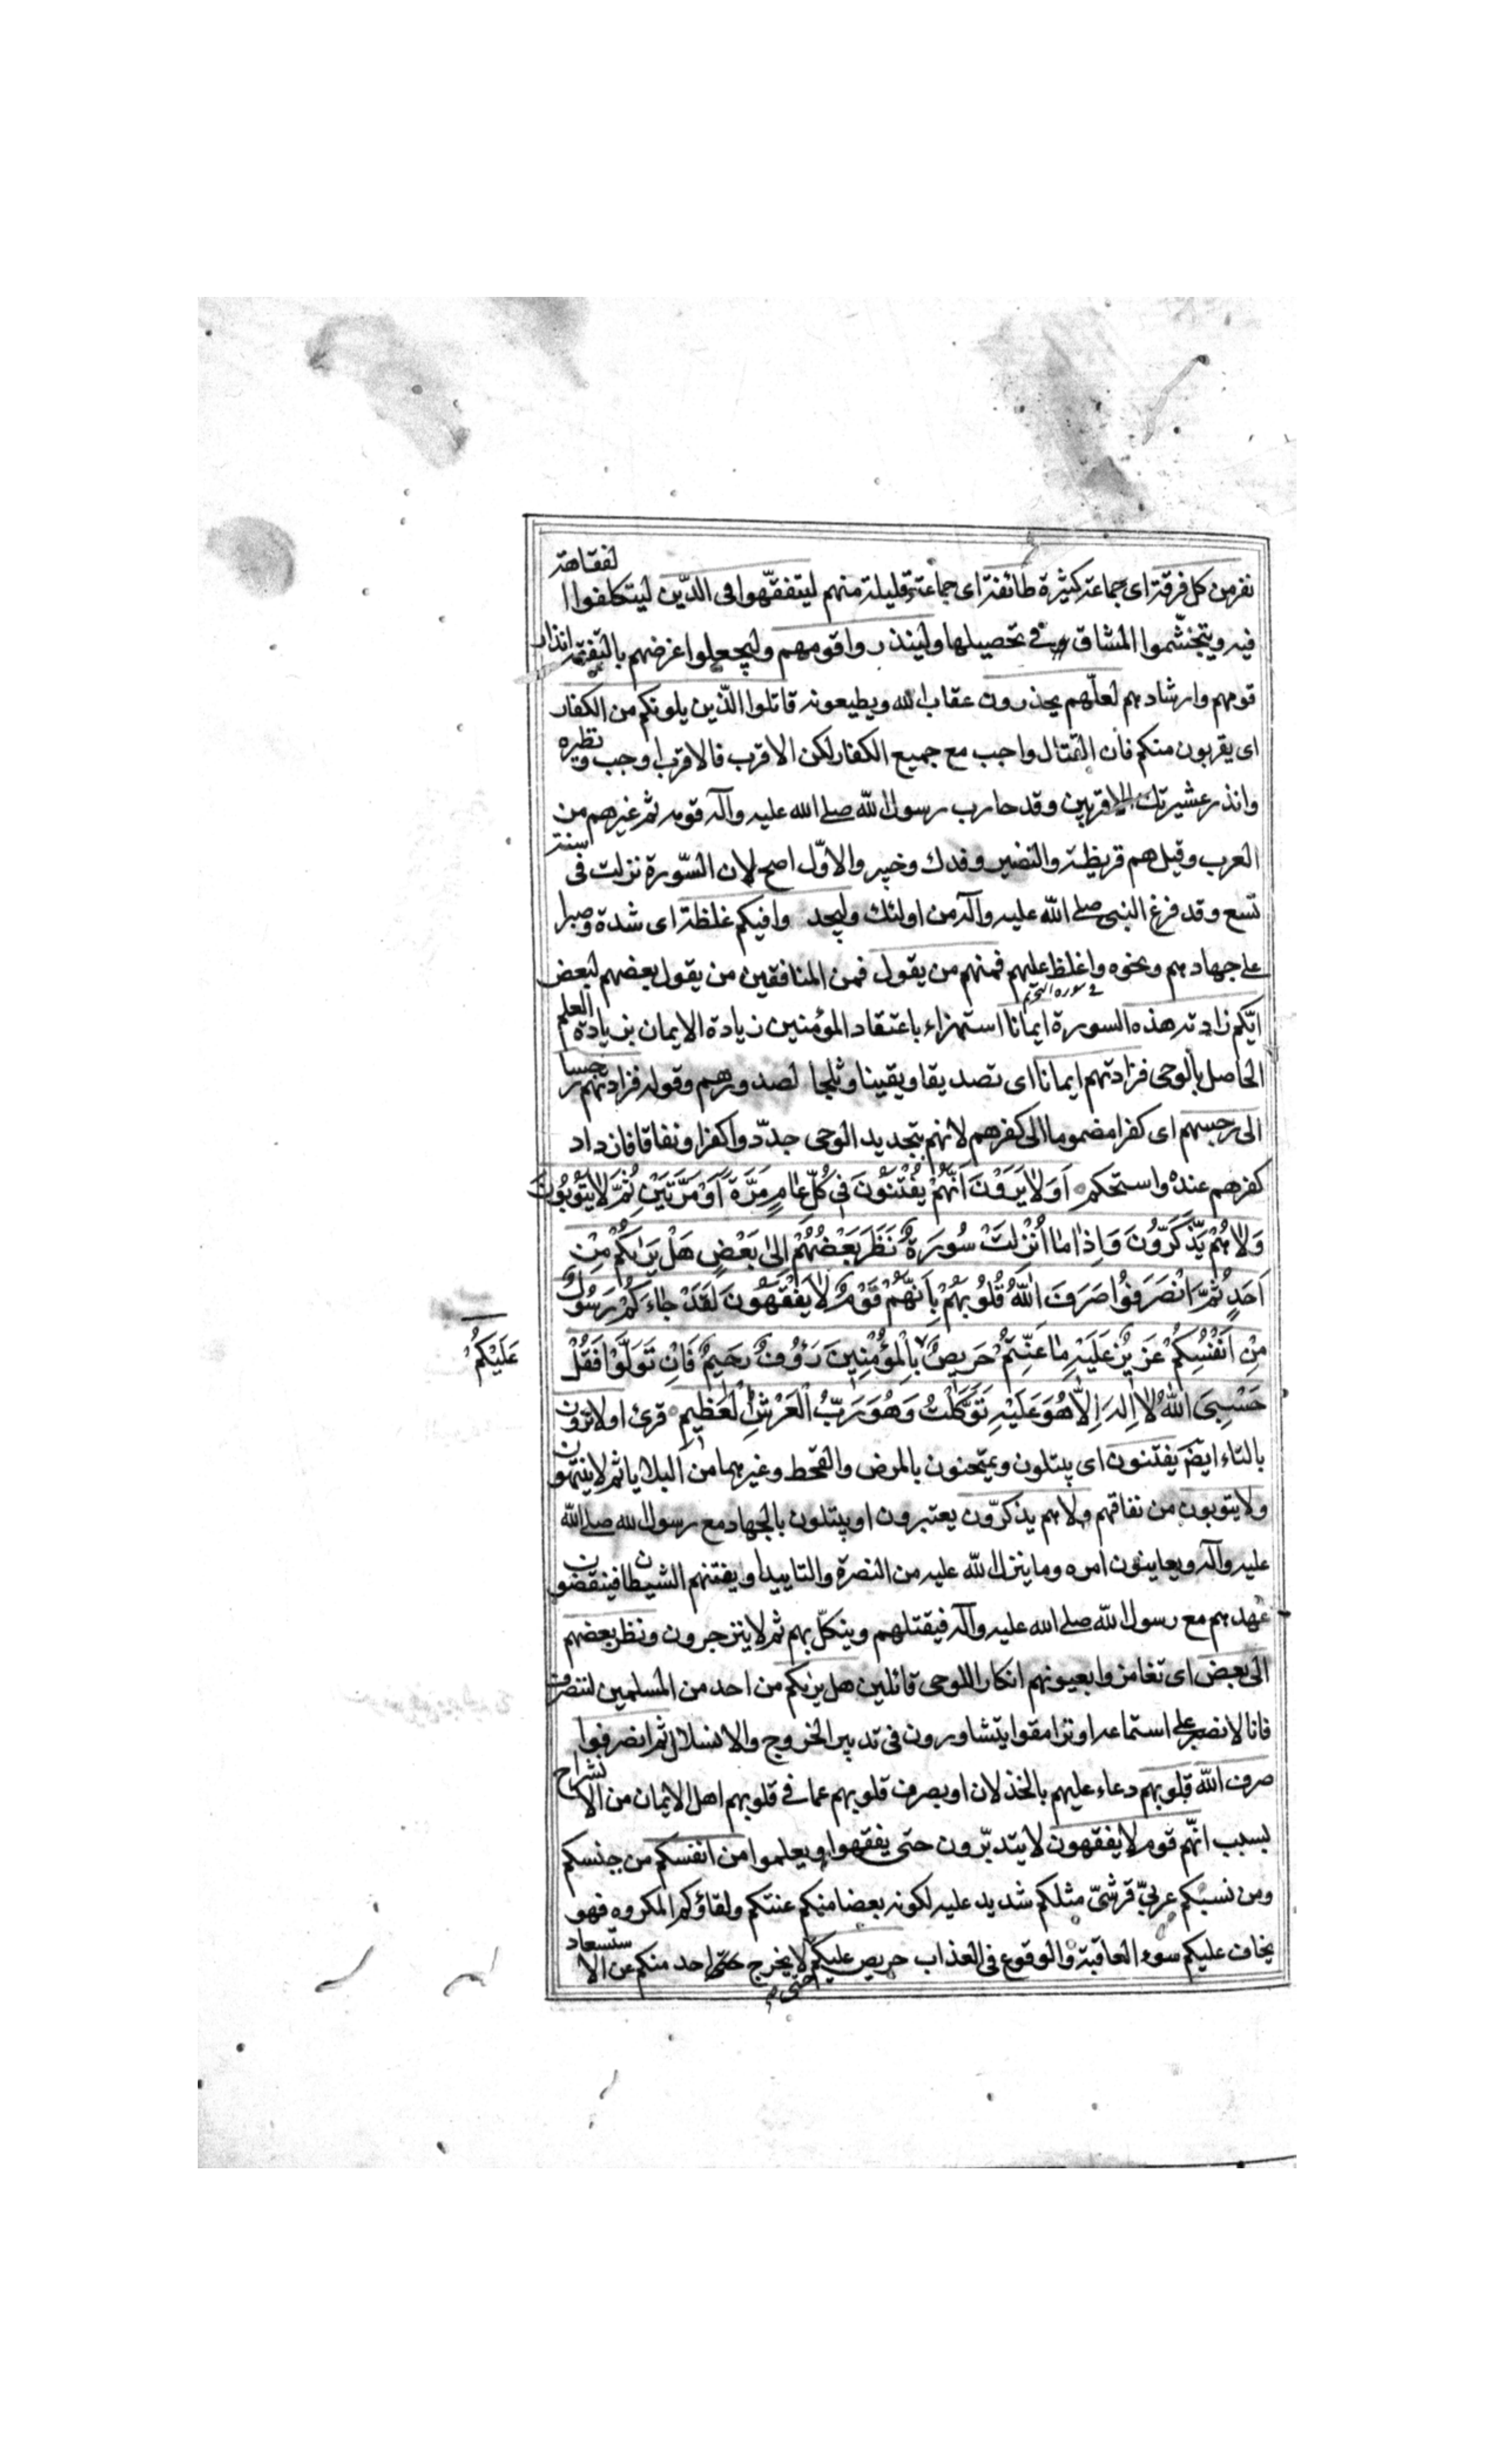 نفر من كل فرقة اى جماعة كثيرة طائفة اى جماعة قليلة منهم ليتفقّهوا فى الدّين ليتكلفوا الفقاهة
فيه ويتجشّموا المشاق فى تحصيلها ولينذروا قومهم وليجعلوا غرضهم بالتفقه انذار
قومهم وارشادهم لعلّهم يحذرون عقاب الله ويطيعونه قاتلوا الّذين يلونكم من الكفار
اى يقربون منكم فان القتال واجب مع جميع الكفار لكن الاقرب فالاقرب اوجب ونظيره
وانذر عشيرتك الاقربين وقد حارب رسول الله صلى الله عليه وآله قومه ثم غيرهم من
العرب وقيل هم قريظة والنضير وفدك وخيبر والاوّل اصح لان السّورة نزلت فى سنة
تسع وقد فرغ النبى صلى الله عليه وآله من اولئك وليجدوا فيكم غلظة اى شدة وصبرا
على جهادهم ونحوه واغلظ عليهم فمنهم من يقول فمن المنافقين من يقول بعضهم لبعض
فى سورة التحريم
ايّكم زادته هذه السورة ايمانا استهزاء باعتقاد المؤمنين زيادة الايمان بزيادة العلم
الحاصل بالوحى فزادتهم ايمانا اى تصديقا ويقينا وثلجا لصدورهم وقوله فزادتهم رجسا
الى رجسهم اى كفرا مضموما الى كفرهم لانهم بتجديد الوحى جدّدوا كفرا ونفاقا فازداد
كفرهم عنده واستحكم اَوَلا يَرَوْنَ اَنَّهُمْ يُفْتَنُونَ فِى كُلِّ عَامٍ مَرَّةً اَوْ مَرَّتَيْنِ ثُمَّ لا يَتُوبُونَ
وَلا هُمْ يَذَّكَّرُونَ وَاِذَا مَا اُنْزِلَتْ سُورَةٌ نَظَرَ بَعْضُهُمْ اِلَى بَعْضٍ هَلْ يَرَاكُمْ مِنْ
اَحَدٍ ثُمَّ انْصَرَفُوا صَرَفَ اللهُ قُلُوبَهُمْ بِاَنَّهُمْ قَوْمٌ لا يَفْقَهُونَ لَقَدْ جَاءَكُمْ رَسُولٌ
مِنْ اَنْفُسِكُمْ عَزِيزٌ عَلَيْهِ مَا عَنِتُّمْ حَرِيصٌ بِالْمُؤْمِنِينَ رَؤُفٌ رَحِيمٌ فَاِنْ تَوَلَّوْا فَقُلْ
عَلَيْكُمْ
حَسْبِىَ اللهُ لا اِلَهَ اِلاَّ هُوَ عَلَيْهِ تَوَكَّلْتُ وَهُوَ رَبُّ الْعَرْشِ الْعَظِيمِ قرئ اولا ترون
بالتاء ايضم يفتنون اى يبتلون ويمتحنون بالمرض والقحط وغيرهما من البلايا ثم لا ينتهون
ولا يتوبون من نفاقهم ولا هم يذكرّون يعتبرون او يبتلون بالجهاد مع رسول الله صلى الله
عليه وآله ويعاينون امره وما ينزل الله عليه من النصرة والتاييد او يفتنهم الشيطان فينقضون
عهدهم مع رسول الله صلى الله عليه وآله فيقتلهم وينكّل بهم ثم لا ينزجرون ونظر بعضهم
الى بعض اى تغامزوا بعيونهم انكارا للوحى قائلين هل يريكم من احد من المسلمين لننصرف
فانا لا نصبر على استماعه او ترامقوا يتشاورون فى تدبير الخروج والانسلال ثم انصرفوا
صرف الله قلوبهم دعاء عليهم بالخذلان او بصرف قلوبهم عما فى قلوبهم اهل الايمان من الانشراح
بسبب انّهم قوم لا يفقهون لا يتدبّرون حتى يفقهوا ويعلموا من انفسكم من جنسكم
ومن نسبكم عربىّ قرشىّ مثلكم شديد عليه لكونه بعضا منكم عنتكم ولقاؤكم المكروه فهو
يخاف عليكم سوء العاقبة والوقوع فى العذاب حريص عليكم لا يخرج احد منكم عن الاستسعاد
حتى